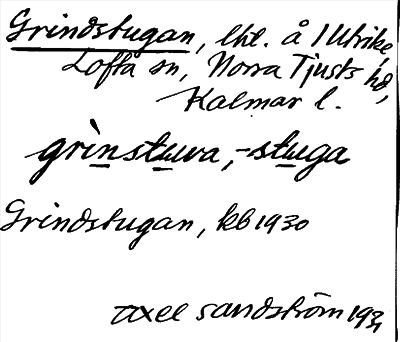 Grindstugan, lht. å 1 Utrike,
Loftå sn, Norra Tjusts hd,
Kalmar l.
grìnstuva, -stuga
Grindstugan, kb 1930
Axel Sandström 193